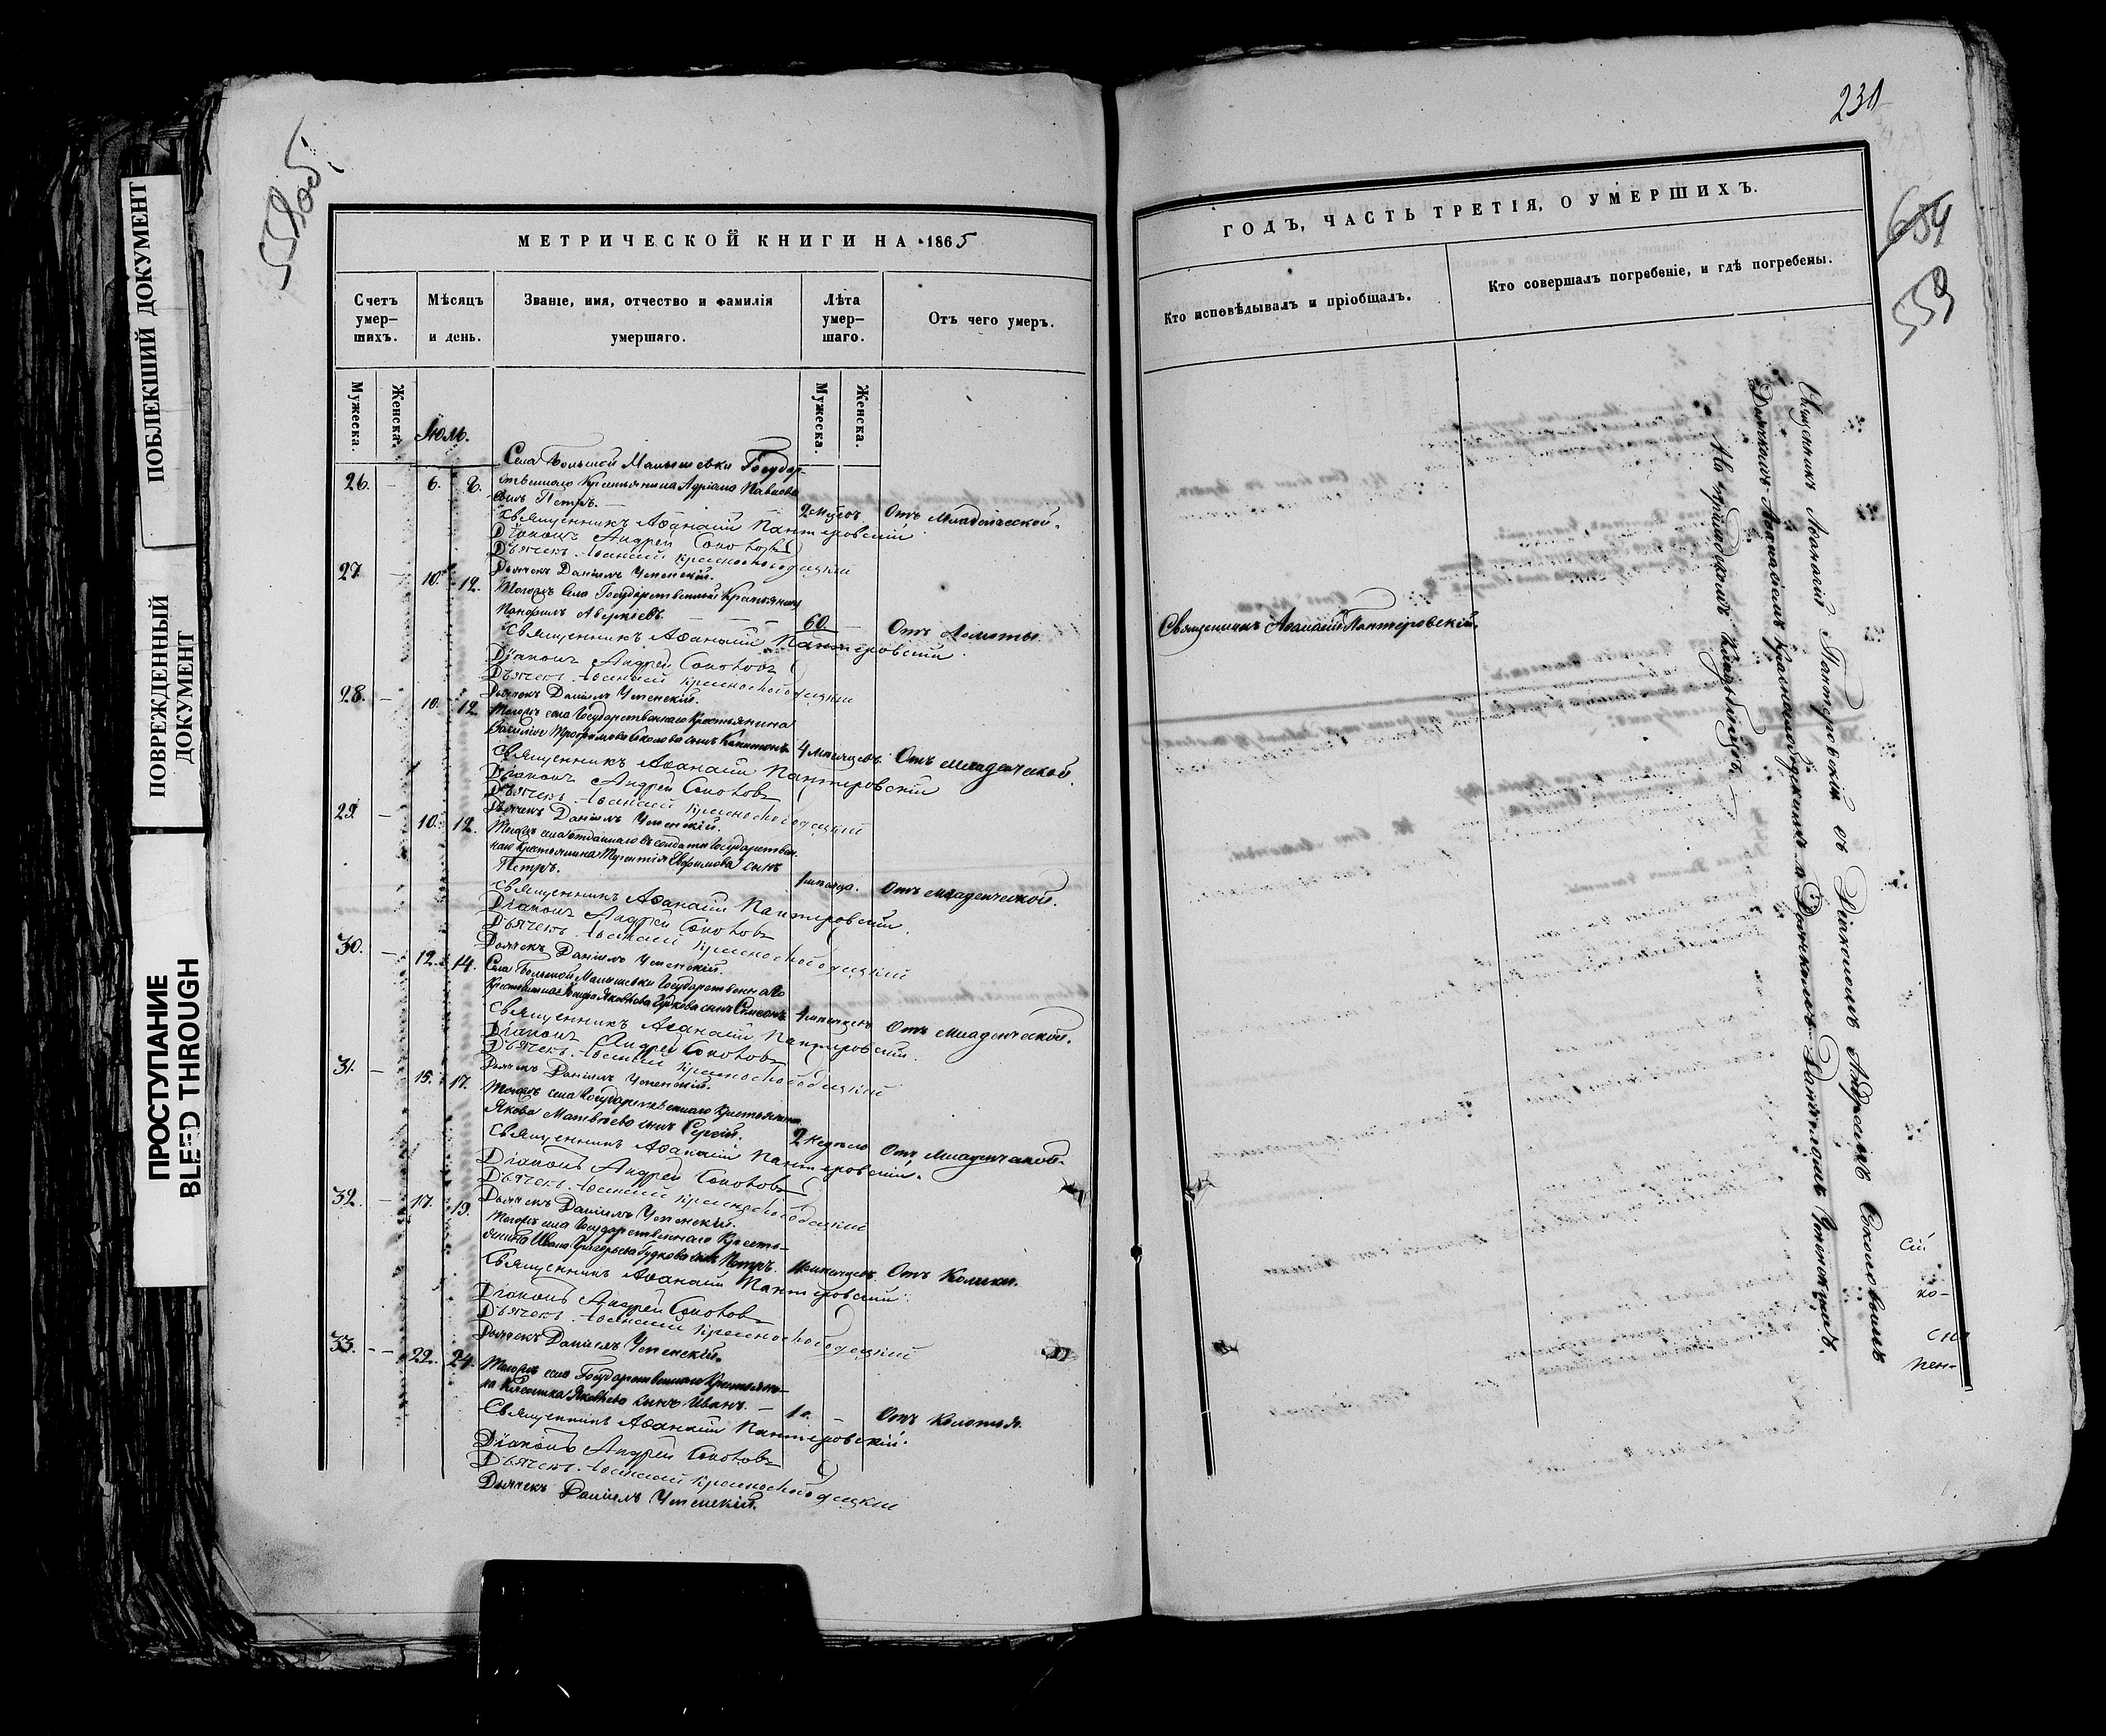 558об.
МЕТРИЧЕСКОЙ КНИГИ НА 1865
Счетъ умер-шихъ.
Мѣсяцъ и день.
Званіе, имя, отчество и фамилія умершаго.
Лѣта умер-шаго.
Отъ чего умеръ.
Мужеска.
Женска.
Мужеска.
Женска.
Іюль.
Села Большой Малышевки Государ-
26. 6. 8. ственнаго Крестьянина Адріана Павлова
сынъ Петръ. 2 мѣсяц Отъ Младенческой.
Священникъ Аѳанасій Пантеровскій
Діаконъ Андрей Соколовъ
Дьячекъ Аѳанасій Краснослободцкій
Дьячекъ Даніилъ Успенскій.
27. 10. 12. Тогожъ села Государственный Крестьянинъ
Панфилъ Аверкіевъ. 60. Отъ Ломоты
Священникъ Аѳанасій Пантеровскій
Діаконъ Андрей Соколовъ
Дьячекъ Аѳанасій Краснослободцкій
Дьячекъ Даніилъ Успенскій.
28. 10. 12. Тогожъ села Государственнаго Крестьянина
Василія Трофимова сынъ Капитонъ 4 месяцевъ. Отъ младенческой.
Священникъ Аѳанасій Пантеровскій
Діаконъ Андрей Соколовъ
Дьячекъ Аѳанасій Краснослободцкій
Дьячекъ Даніилъ Успенскій.
29. 10. 12. Тогожъ села отданнаго въ солдаты Государствен-
наго Крестьянина Терентія Ефимова сынъ
Петръ. 1 мѣсяца. Отъ младенческой.
Священникъ Аѳанасій Пантеровскій
Діаконъ Андрей Соколовъ
Дьячекъ Аѳанасій Краснослободцкій
Дьячекъ Даніилъ Успенскій.
30. 12. 14. Села Большой Малышевки Государственнаго
Крестьянина Яковлева Гудкова сынъ Симеонъ 4 месяцевъ Отъ Младенческой.
Священникъ Аѳанасій Пантеровскій.
Діаконъ Андрей Соколовъ
Дьячекъ Аѳанасій Краснослободцкій
Дьячекъ Даніилъ Успенскій.
31. 15. 17. Тогожъ села Государственнаго Крестьянина
Якова Матвѣева сынъ Сергій. 2 недели Отъ Младенческой.
Священникъ Аѳанасій Пантеровскій.
Діаконъ Андрей Соколовъ
Дьячекъ Аѳанасій Краснослободцкій
Дьячекъ Даніилъ Успенскій.
32. 17. 19. Тогожъ села Государственнаго Кресть-
янина Ивана Григорьева Гудкова сынъ Петръ. месяцевъ Отъ Колики.
Священникъ Аѳанасій Пантеровскій
Діаконъ Андрей Соколовъ
Дьячекъ Аѳанасій Краснослободцкій
Дьячекъ Даніилъ Успенскій.
33. 22. 24. Тогожъ села Государственнаго Крестьяни-
на Яковлева сынъ Иванъ. 1 г. Отъ Колотья.
Священникъ Аѳанасій Пантеровскій.
Діаконъ Андрей Соколовъ
Дьячекъ Аѳанасій Краснослободцкій
Дьячекъ Даніилъ Успенскій.
231
654
559
ГОДЪ, ЧАСТЬ ТРЕТІЯ, О УМЕРШИХЪ.
Кто исповѣдывалъ и пріобщалъ.
Кто совершалъ погребеніе, и гдѣ погребены.
Священникъ Аѳанасій Пантеровскій.
Священникъ Аѳанасій Пантеровскій съ Діакономъ Андреемъ Соколовымъ
Дьячкомъ Аѳанасіемъ Краснослободцкимъ и Дьячкомъ Даніиломъ Успенскимъ.
На приходскомъ кладбищѣ.
сій
ко-
пен-
ПОБЛЕКШИЙ ДОКУМЕНТ
ПОВРЕЖДЕННЫЙ ДОКУМЕНТ
ПРОСТУПАНИЕ
BLEED THROUGH